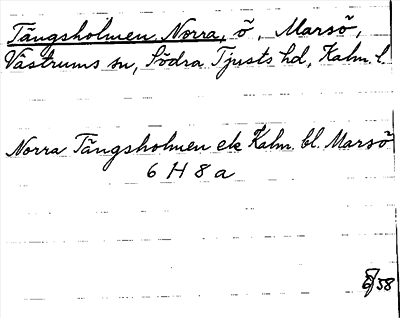 Tångsholmen Norra, ö, Marsö,
Västrums sn, Södra Tjusts hd, Kalm. l.
Norra Tångsholmen ek Kalm. bl. Marsö
6 H 8 a
58